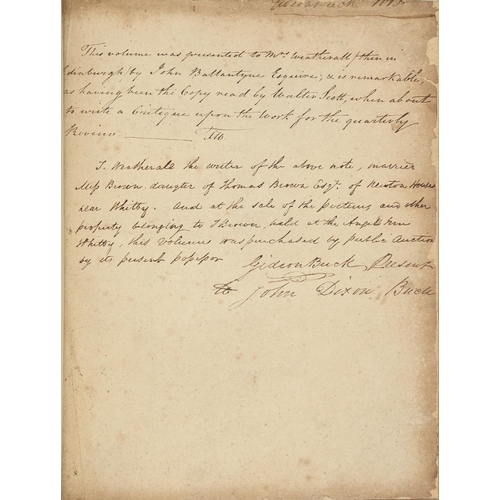 Gideon Buck
This volume was presented to Mrs Weatherall (then in
Edinburgh) by John Ballantyne Esquire; & is remarkable,
as having been the Copy read by Walter Scott, when about
to write a Critique upon the Work for the quarterly
Review ——— TW.
T. Weatherall the writer of the above note, married
Miss Brown daugter of Thomas Brown Esqr. of Newton House
near Whitby. And at the sale of the pictures and other
property belonging to T Brown, held at the Angel Inn
Whitby, this volume was purchased by public Auction
by its present possessor
Gideon Buck Present
to John Dixon Buck